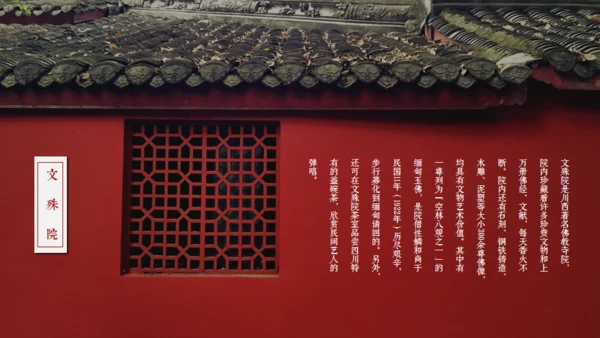 文殊院
文殊院是川西著名佛教寺院，
院内珍藏着许多珍贵文物和上
万册佛经、文献，每天香火不
断。院内还有石刻、钢铁铸造、
木雕、泥塑等大小300余尊佛像，
均具有文物艺术价值。其中有
一尊列为『空林八观之一』的
缅甸玉佛，是院僧性鳞和尚于
民国二年（1922年）历尽艰辛，
步行募化到缅甸请回的。另外，
还可在文殊院茶室品尝四川特
有的盖碗茶，欣赏民间艺人的
弹唱。